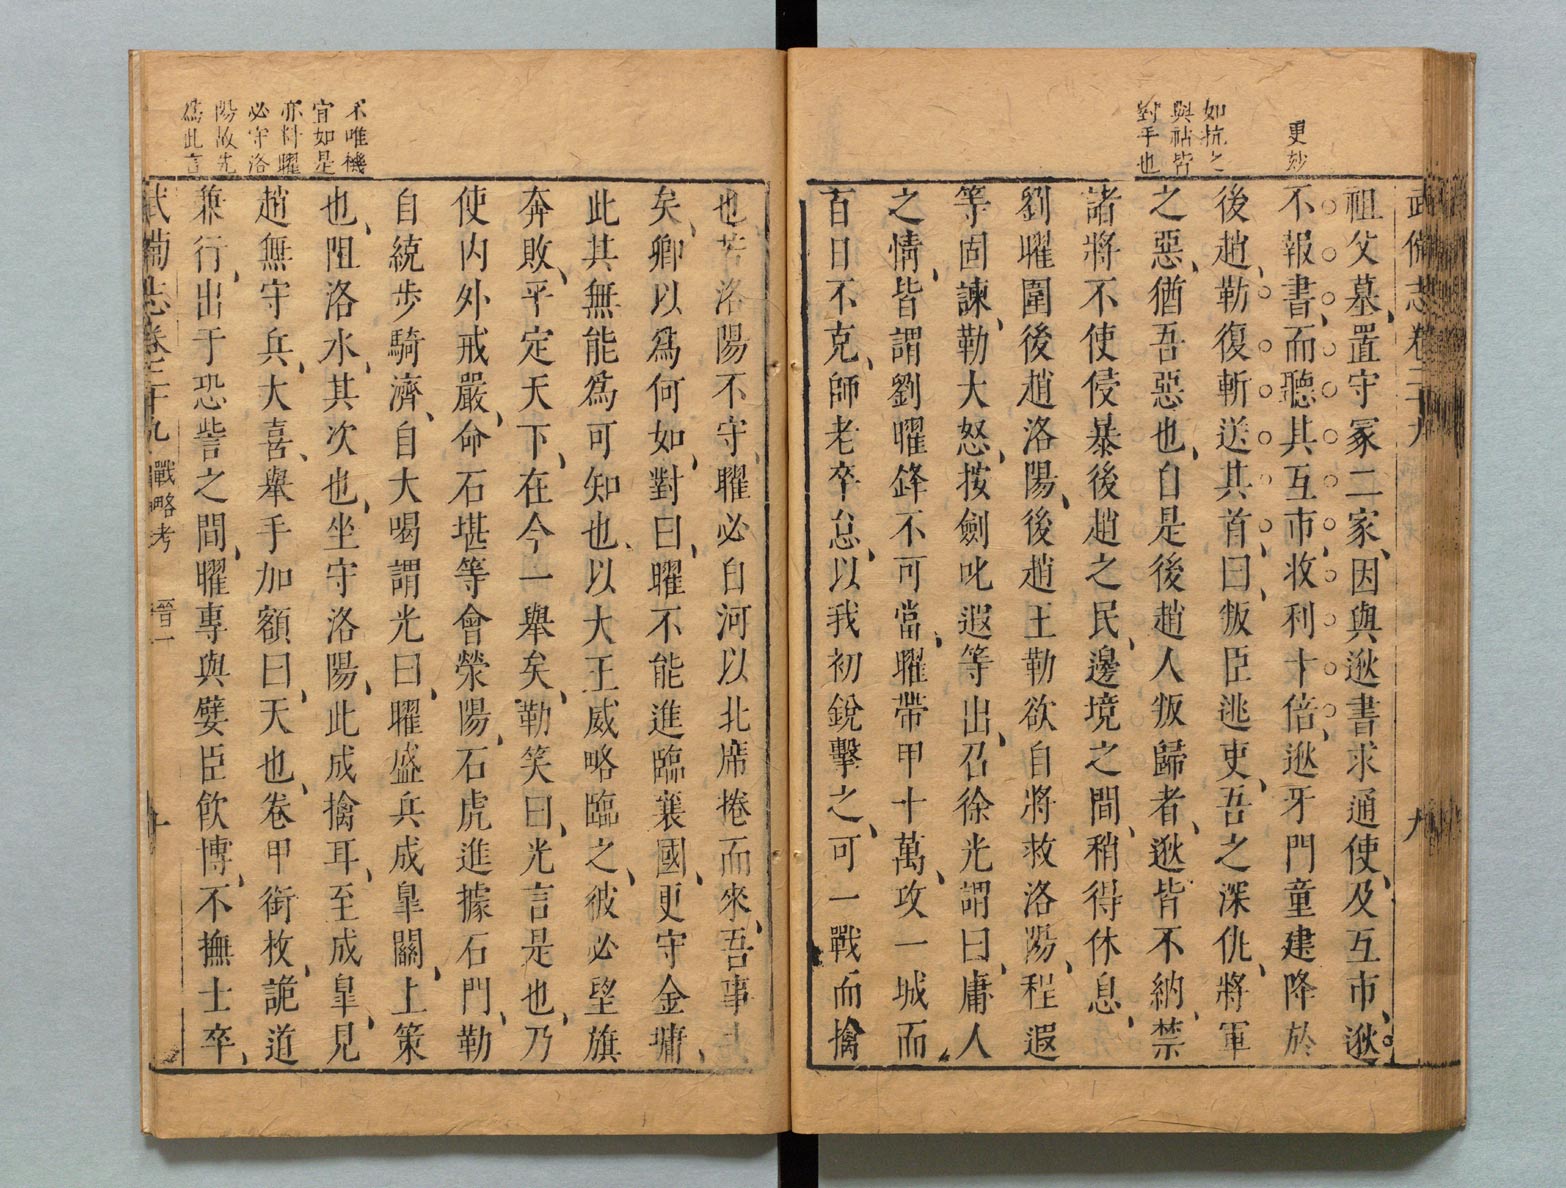 更妙
如抗之
與祜皆
對手也
武備志卷二十九
九
祖父墓置守冢二家因與逖書求通使及互市逖
不報書而聽其互市收利十倍逖牙門童建降於
後趙勒復斬送其首曰叛臣逃吏吾之深仇將軍
之惡猶吾惡也自是後趙人叛歸者逖皆不納禁
諸將不使侵暴後趙之民邊境之間稍得休息
劉曜圍後趙洛陽後趙王勒欲自將救洛陽程遐
等固諫勒大怒按劍叱遐等出召徐光謂曰庸人
之情皆謂劉曜鋒不可當曜帶甲十萬攻一城而
百日不克師老卒怠以我初銳擊之可一戰而擒
不唯機
宜如是
亦料曜
必守洛
陽故先
爲此言
也若洛陽不守曜必自河以北席捲而來吾事去
矣卿以爲何如對曰曜不能進臨襄國更守金墉
此其無能爲可知也以大王威略臨之彼必望旗
奔敗平定天下在今一舉矣勒笑曰光言是也乃
使内外戒嚴命石堪等會滎陽石虎進據石門勒
自統步騎濟自大堨謂光曰曜盛兵成臯關上策
也阻洛水其次也坐守洛陽此成擒耳至成臯見
趙無守兵大喜舉手加額曰天也卷甲銜枚詭道
兼行出于恐訾之間曜專與嬖臣飲博不撫士卒
武備志卷二十九 戰略考 晉一
十